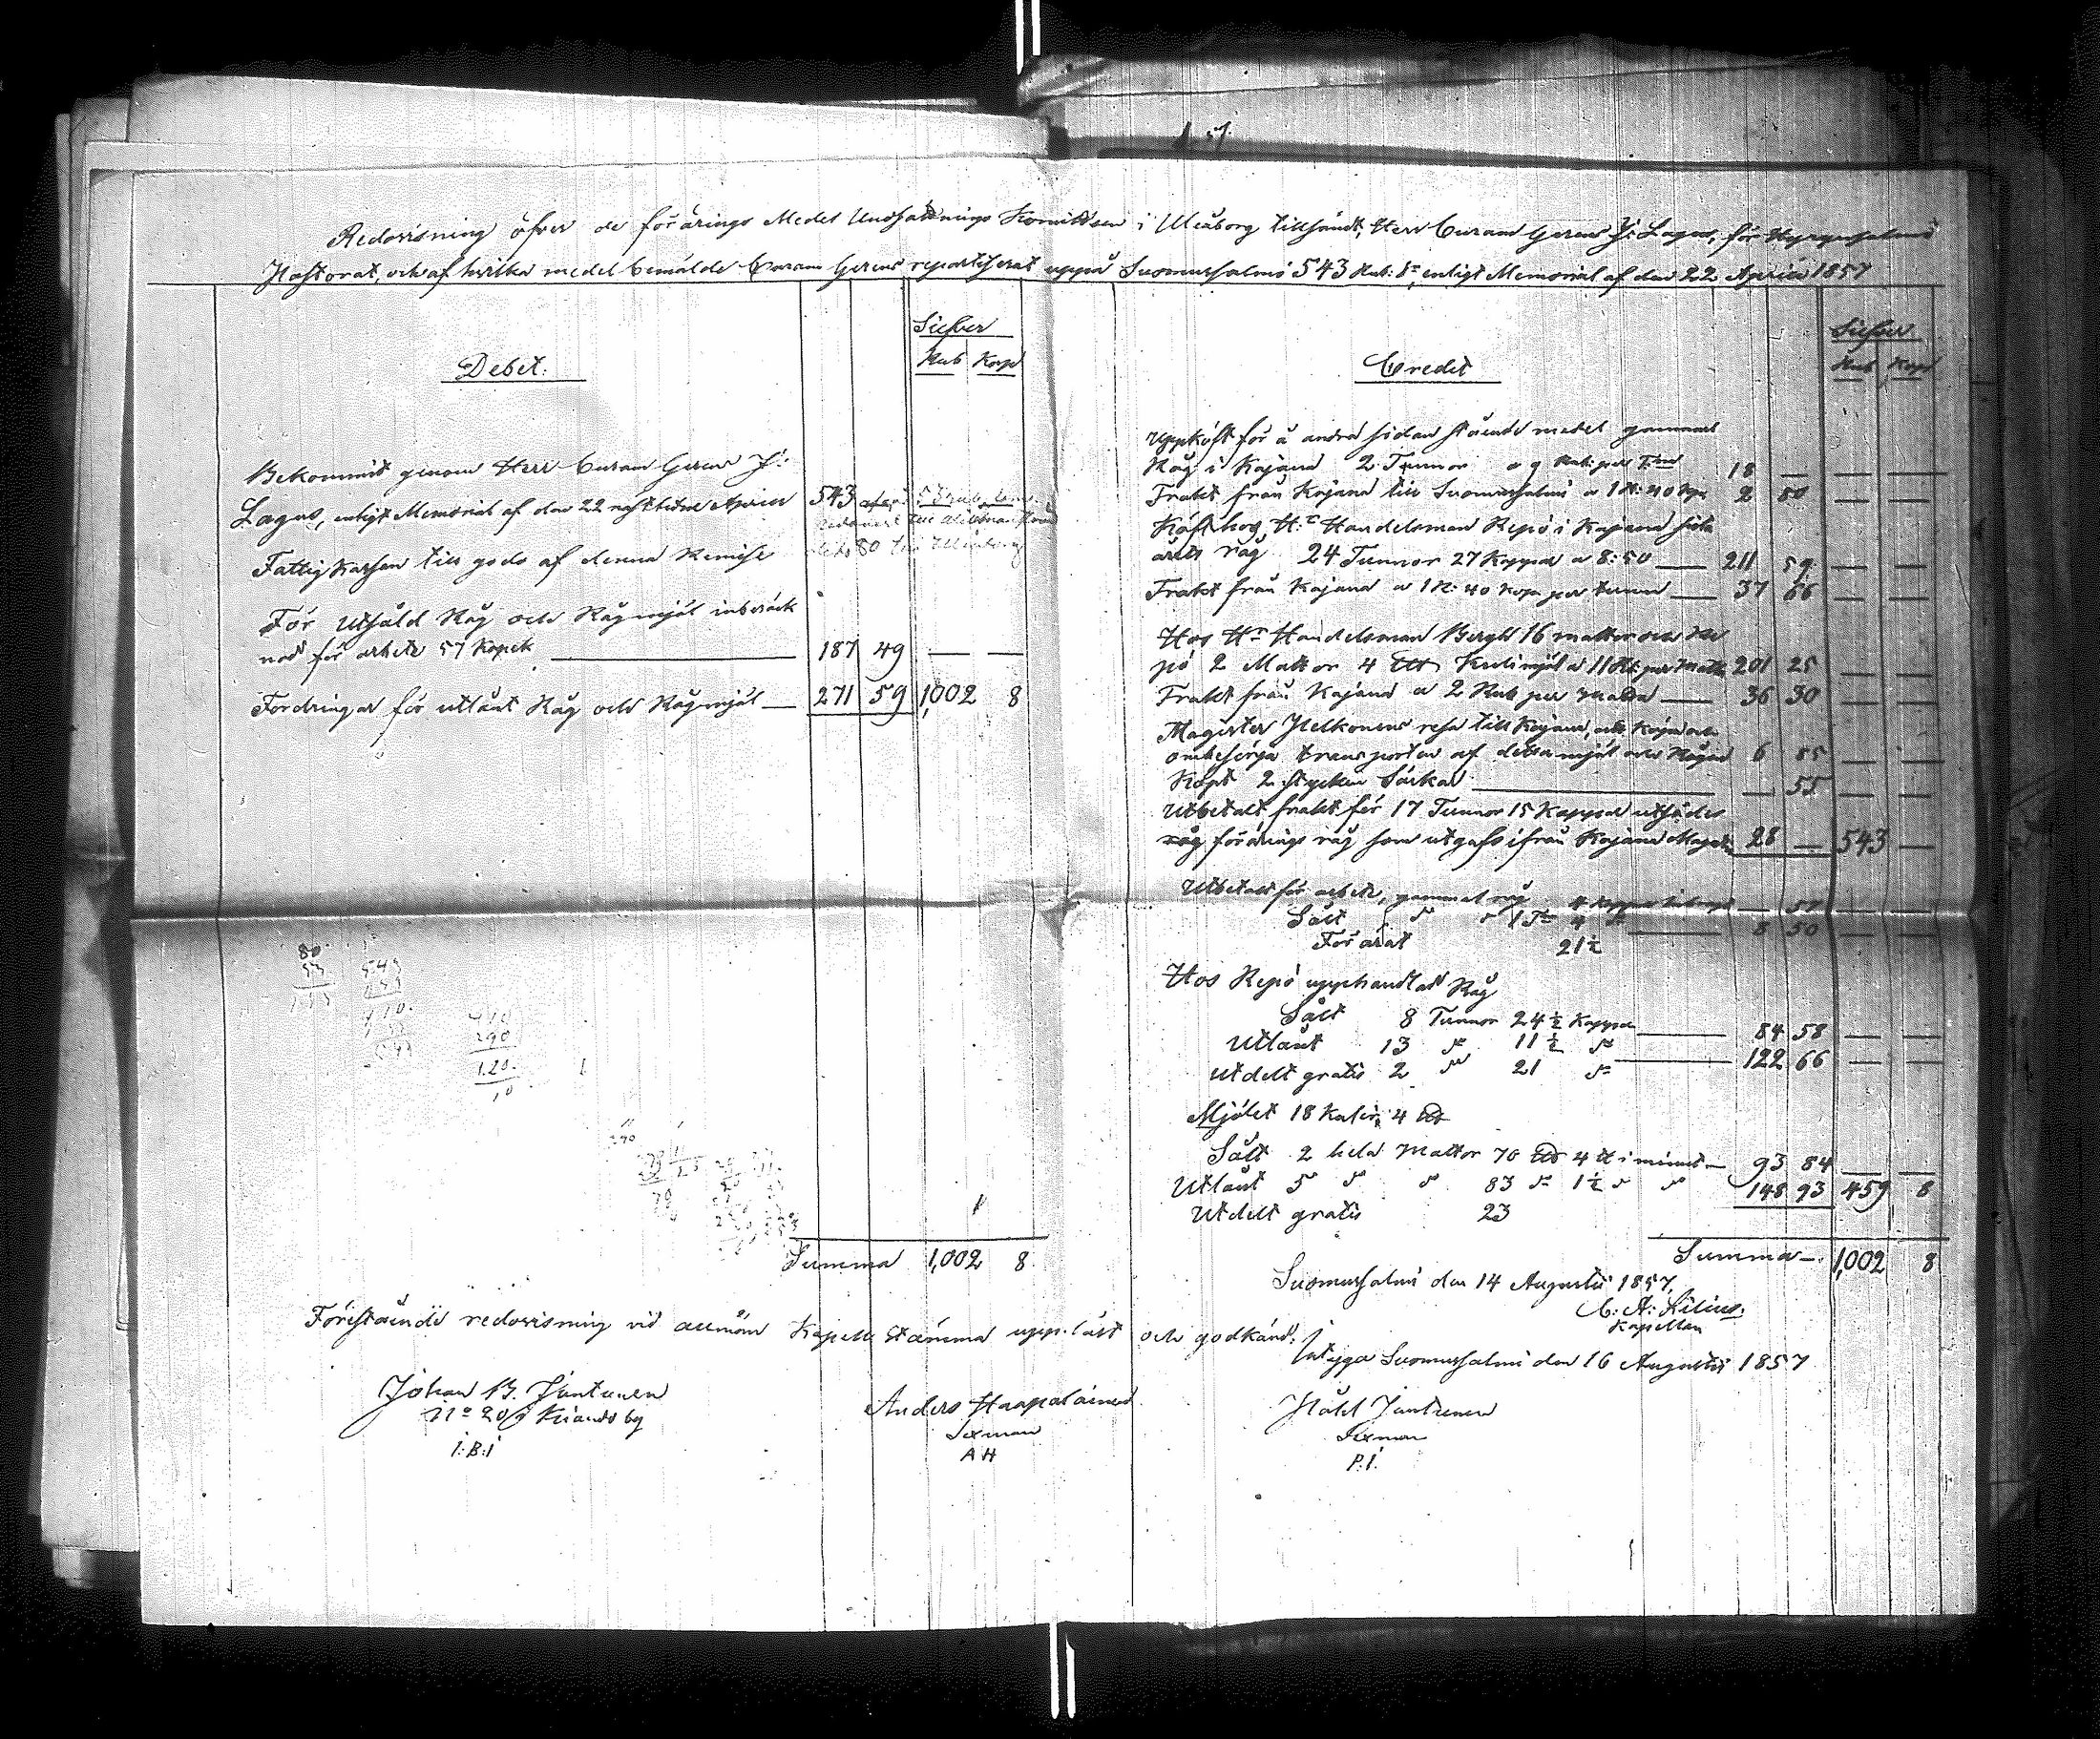 Redovisning öfver de förärings Medel Undsättnings Komitéen i Uleåborg tillsändt, Herr Curam Gerens J: Lagus, för Hyrynsalmi
Pastorat, och af hvilka medel bemälde Curam Gerens repartiserat uppå Suomussalmi 543 Rub: Sr, enligt Memorial af den 22 April 1857
Debet.
Silfver
Rub Kop
Bekommit genom Herr Curam Gerens J:
Lagus, enligt Memorial af den 22 nästledne April 543
Fattig Kassan till godo af denna Remise
För utsåld Råg och Rågmjöl inberäk
nad för arbete 57 Kopek 187 49 — —
Fordringar för utlånt Råg och Rågmjöl — 271 59 1,002 8
80
53
543
290
120.
Summa 1,002 8
Credit
Silfver
Rub Kop
Uppköpt för å andra sidan stående medel gammal
Råg i Kajana 2 Tunnor a 9 Rub: per Tnd 18 — — —
Frakt från Kajana till Suomussalmi a 1 R: 40 Kop 2 80 — —
Köpt hos Hr Handelsman Repo i Kajana sista
årets råg 24 Tunnor 27 Kappar a 8:50 — 211 59 — —
Frakt från Kajana a 1 R: 40 Kop per tunna — 37 66 — —
Hos Hr Handelsman Bergh 16 mattor och Re
po 2 Mattor 4 ℔ Kulimjöl a 11 Rb per Matta 201 25 — —
Frakt från Kajana a 2 Rub per Matta — 36 30 — —
Magister Helkonens resa till Kajana, att köpa och
ombesörja transporten af detta mjöl och Rågen 6 85 — —
Köpt 2 stycken Säckar — — 55 — —
Utbetalt frakt för 17 Tunnor 15 Kappar utsädes
råg förärings råg som utgafs ifrån Kajana Magasin 28 — 543 —
Utbetalt för arbete, gammal råg 4 Kappar — 57 — —
Sålt 1 Tn 4 — 8 50 — —
Förärat 21 ½
Hos Repo upphandlad Råg
Sålt 8 Tunnor 24 ½ Kappar — 84 58 — —
Utlånt 13 " 11 ½ " — 122 66 — —
Utdelt gratis 2 " 21 "
Mjölet 18 Kulir, 4 ℔
Sålt 2 hela Mattor 70 ℔ 4 ℔ i minut — 93 84 — —
Utlånt 5 " " 83 " 1 ½ " " 148 93 459 8
Utdelt gratis 23
Summa — 1,002 8
Suomussalmi den 14 Augusti 1857,
C: A: Lilius.
Kapellan
Förestående redovisning vid allmän Kapell Stämma uppläst och godkänd.
Intyga Suomussalmi den 16 Augusti 1857
Johan B. Jäntunen
No 20 Kiando by
I:B:I
Anders Haapalainen
Sexman
A H
Påhl Jäntunen
Sexman
P:I.